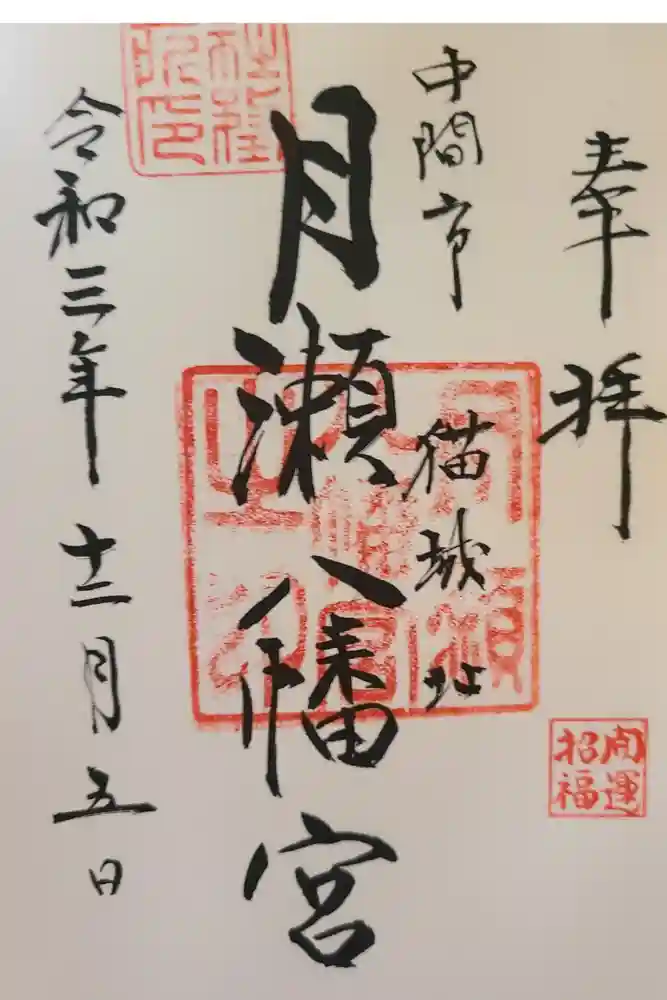 奉拝
開運
招福
中間市 猫城址
月瀬八幡宮
令和三年十二月五日